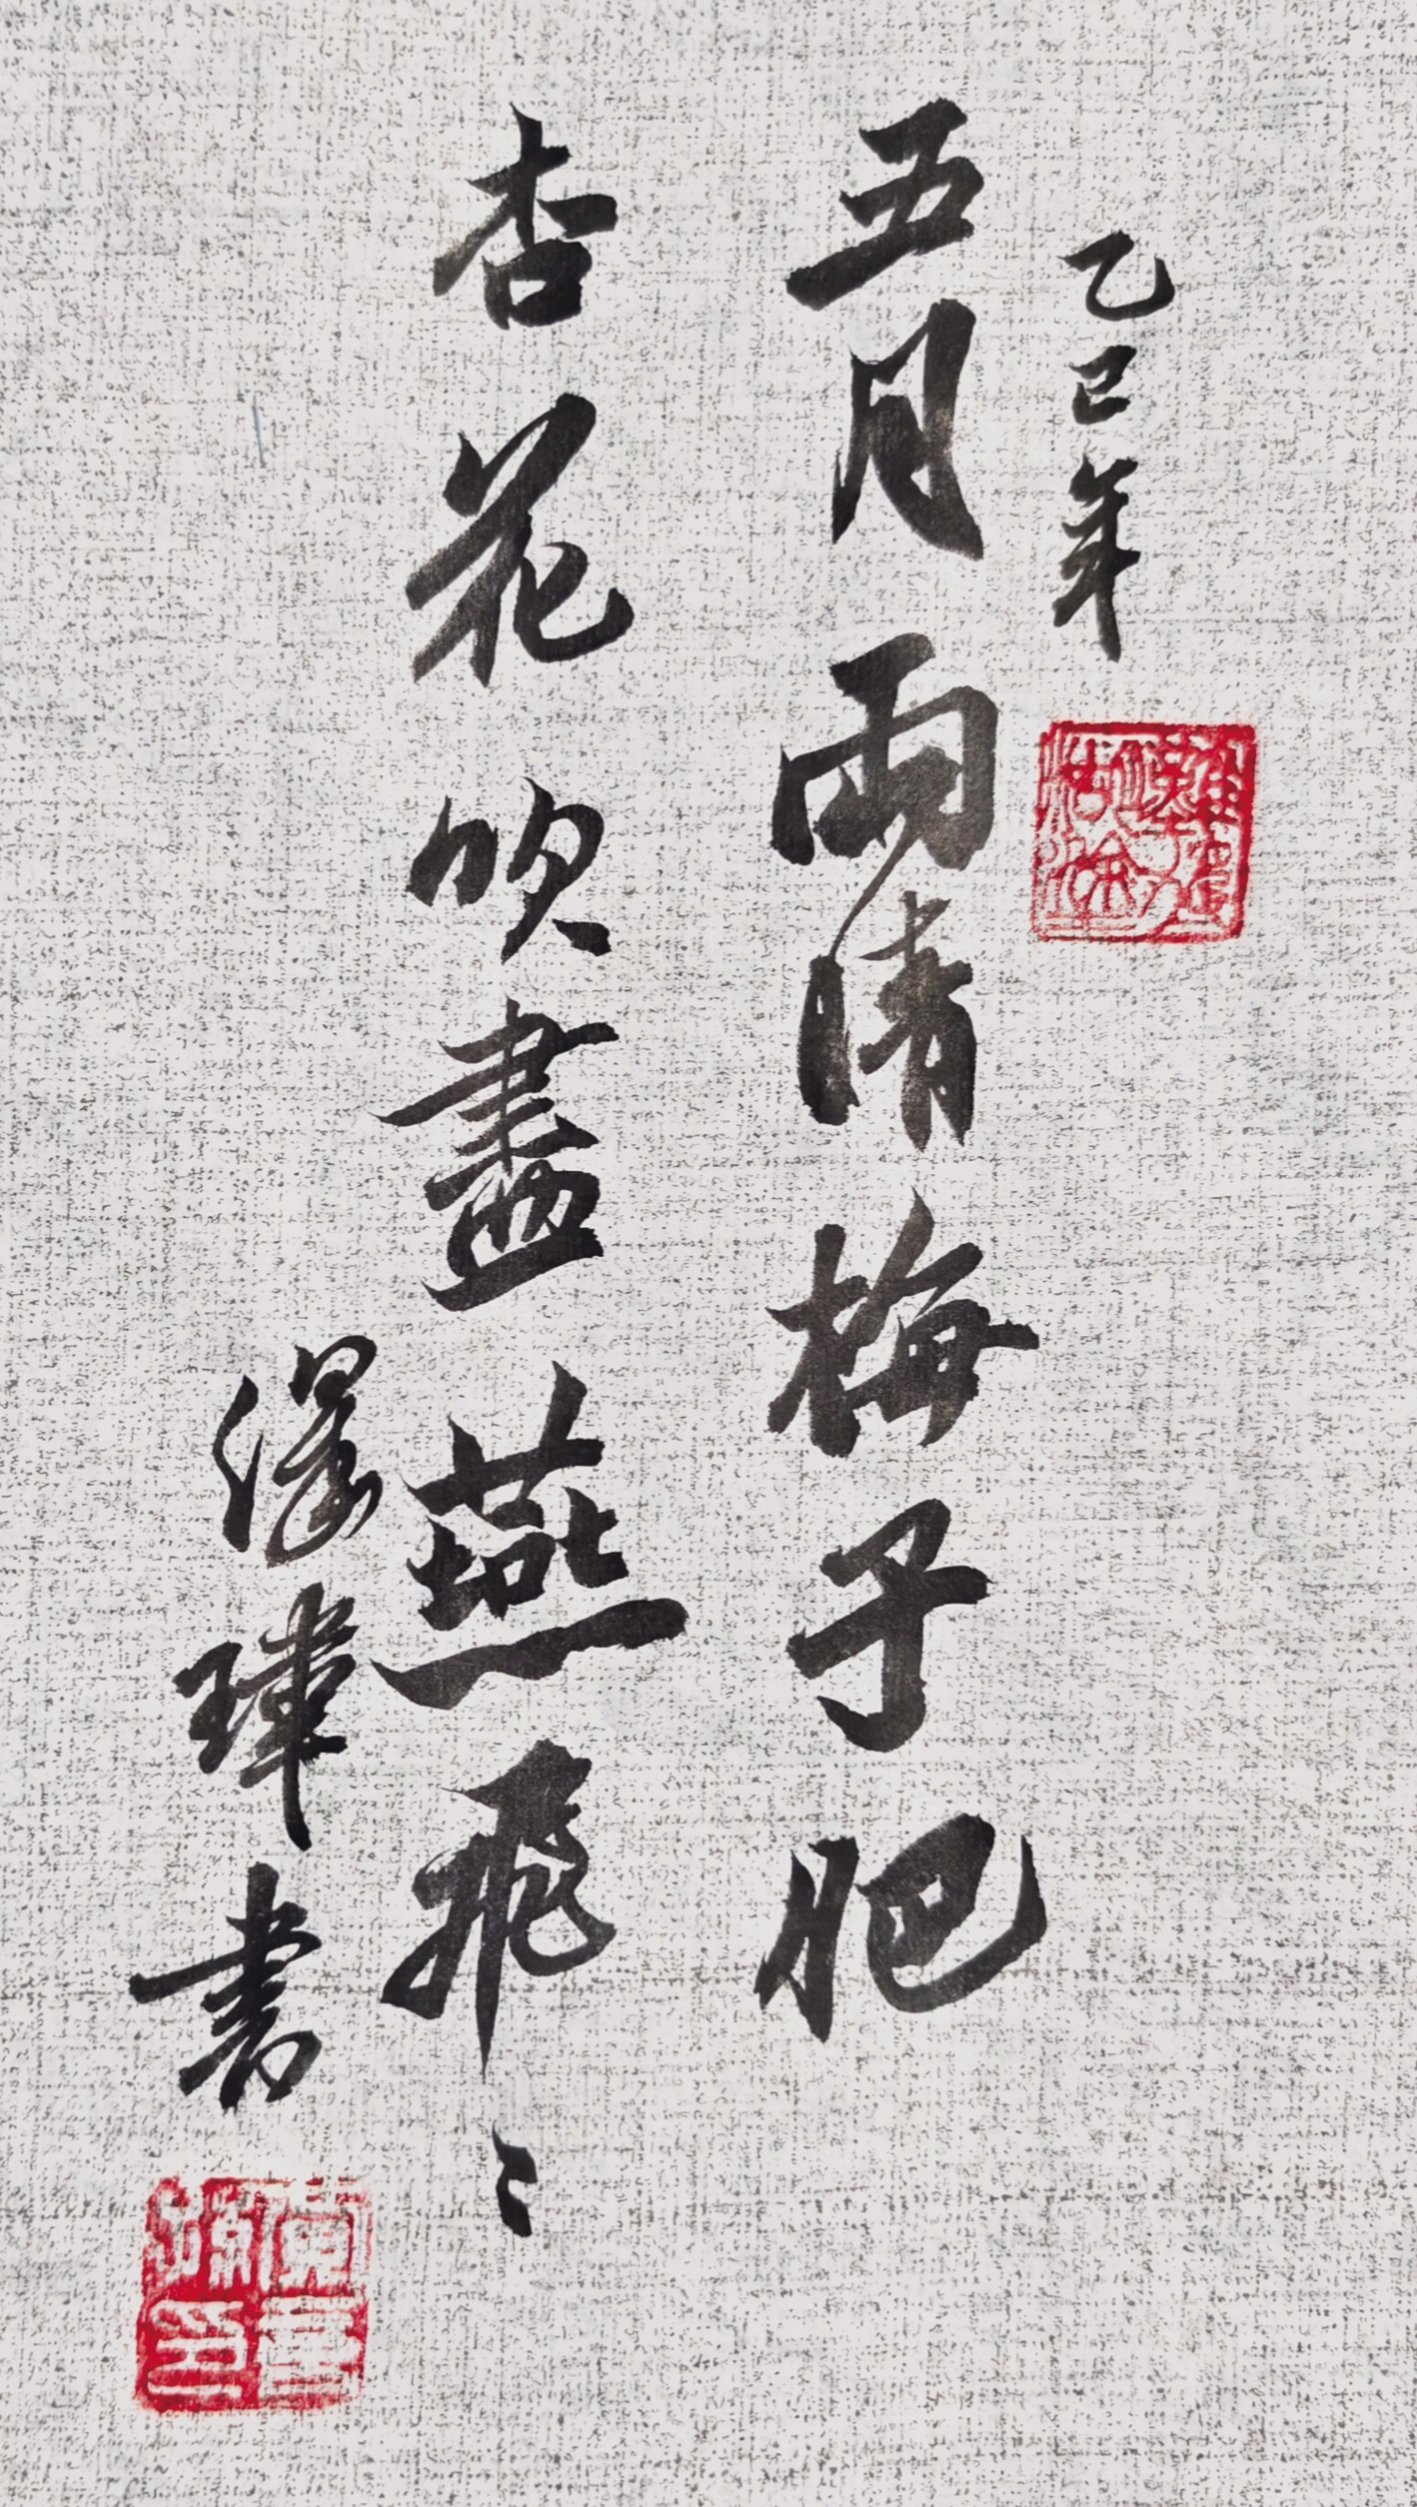 乙巳年
五月雨晴梅子肥
杏花吹盡燕飛〻
澤瑋書